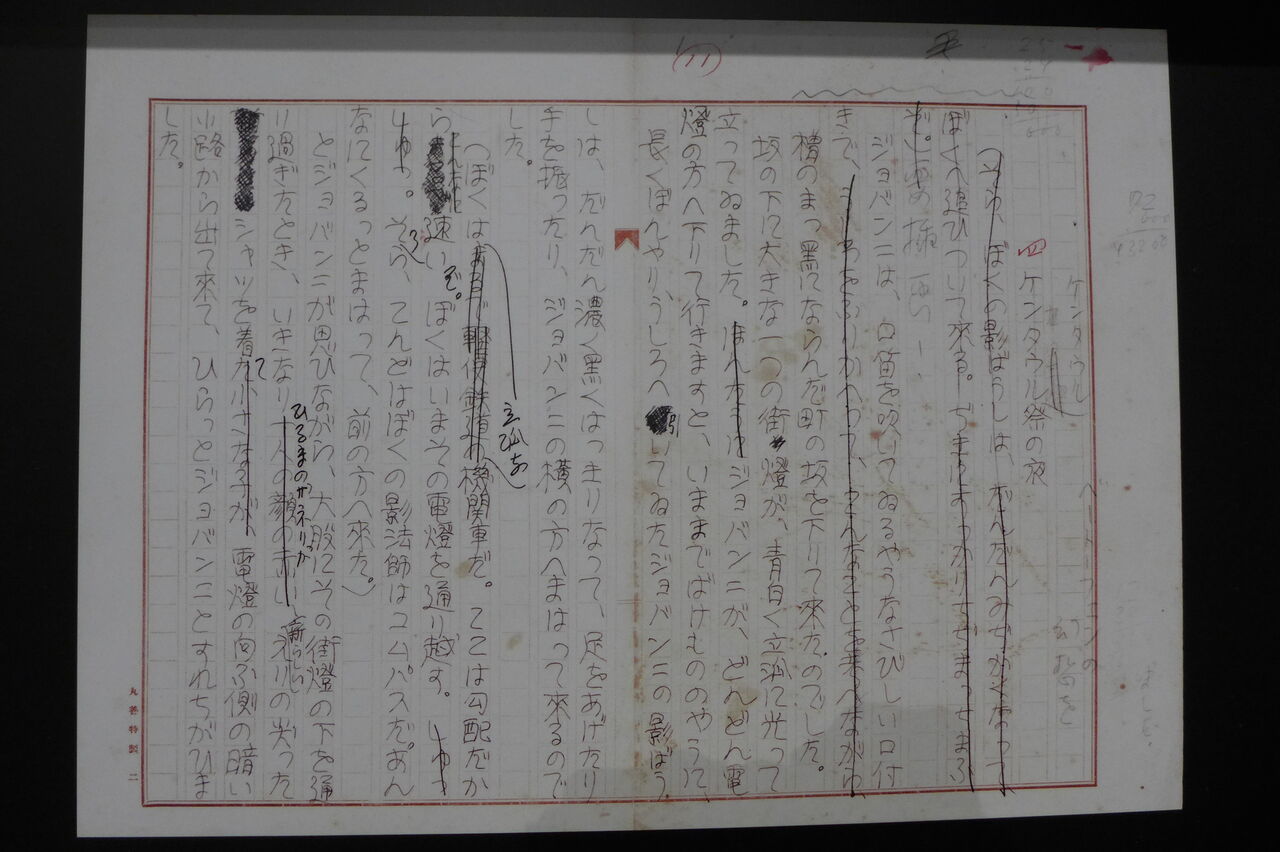 (四)
ケンタウル
四、ケンタウル祭の夜
ベートーヴェンの
幻想を
(そら、ぼくの影ばうしは、だんだんみぢかくなって
ぼくへ追ひついて来る。ぢきにすっかりちぢまっちまふ
ぞ。)
ジョバンニは、口笛を吹いてゐるやうなさびしい口付
きで、うしろをふりかへって、こんなことを考へながら、
檜のまっ黒にならんだ町の坂を下りて来たのでした。
坂の下に大きな一つの街燈が、青白く立派に光って
立ってゐました。ほんたうにジョバンニが、どんどん電
燈の方へ下りて行きますと、いままでばけもののやうに、
長くぼんやり、うしろへ引いてゐたジョバンニの影ばう
しは、だんだん濃く黒くはっきりなって、足をあげたり
手を振ったり、ジョバンニの横の方へまはって来るので
した。
(ぼくはまるで軽便鉄道の機関車だ。ここは勾配だか
立派な
ら速いぞ。ぼくはいまその電燈を通り越す。しゅっ
しゅっ。そうら、こんどはぼくの影法師はコムパスだ。あん
なにくるっとまはって、前の方へ来た。)
とジョバンニが思ひながら、大股にその街燈の下を通
り過ぎたとき、いきなり一人の顔の赤い、新らしいえりの尖った
ひるまのザネリが
シャツを着て小さな子が、電燈の向ふ側の暗い
小路から出て来て、ひらっとジョバンニとすれちがひま
した。
丸善特製 二